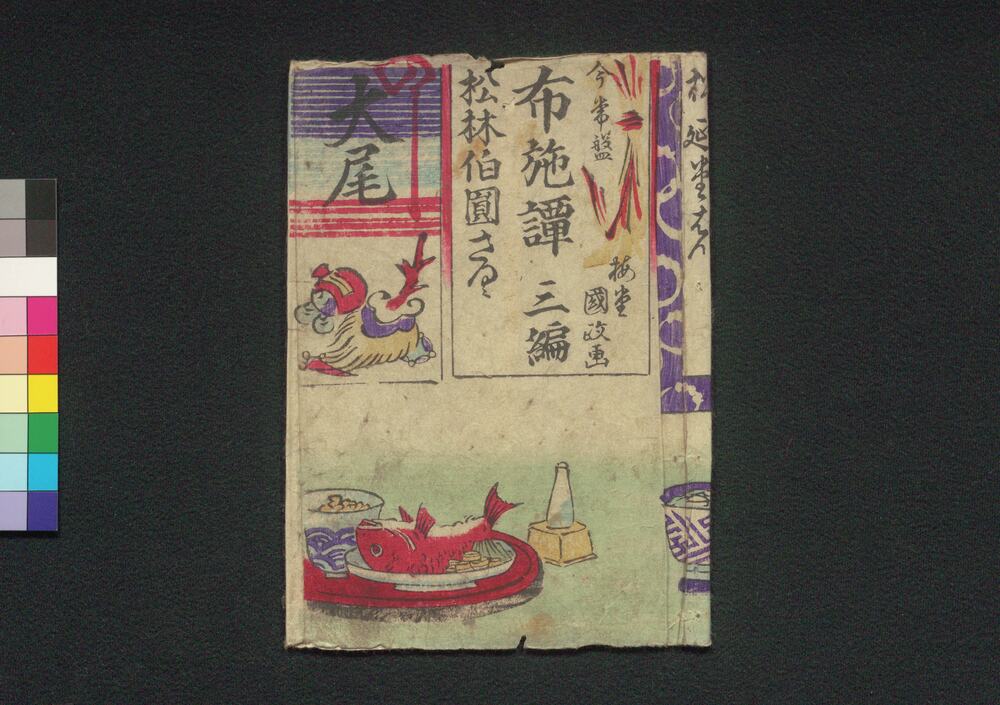 松延堂はん
今常盤
布施譚 三編
梅堂
國政画
松林伯圓さく
大尾